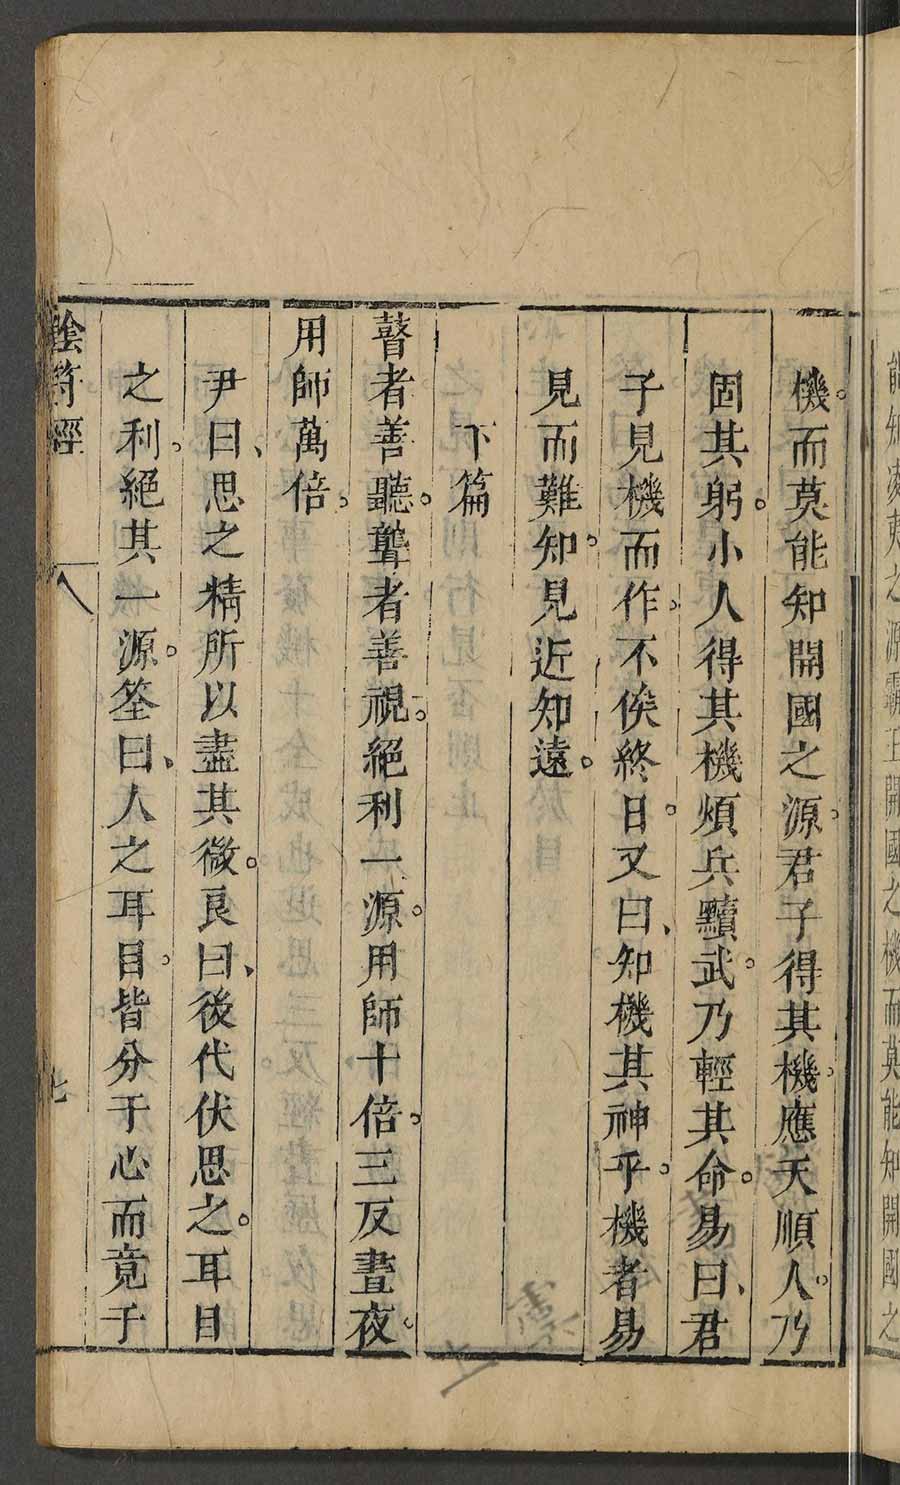 能知凌夷之源霸王開國之機而莫能知開國之
機。而莫能知開國之源。君子得其機。應天順人。乃
固其躬。小人得其機煩兵黷武。乃輕其命。易曰、君
子見機而作。不俟終日。又曰、知機其神乎。機者易
見而難知。見近知遠。
下篇
瞽者善聽。聾者善視。絕利一源。用師十倍。三反晝夜。
用師萬倍。
尹曰、思之精所以盡其微。良曰、後代伏思之。耳目
之利。絕其一源。筌曰、人之耳目。皆分于心而竟于
陰符經 八 七